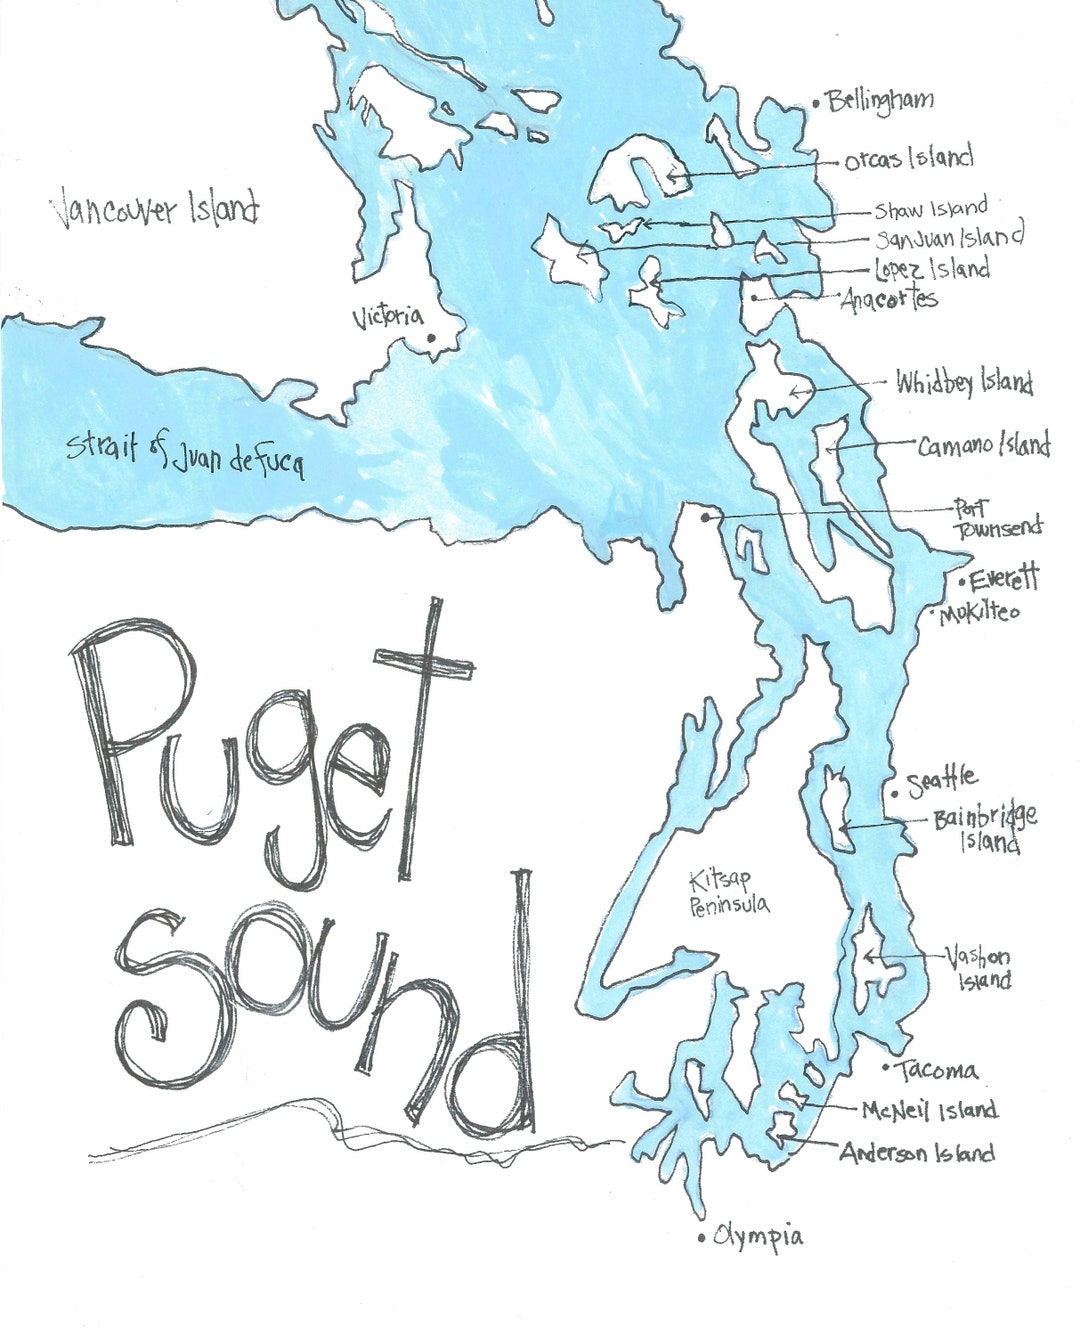 Bellingham
Orcas Island
Vancouver Island
Shaw Island
San Juan Island
Lopez Island
Anacortes
Victoria
Whidbey Island
Strait of Juan de Fuca
Camano Island
Port
Townsend
Everett
Mukilteo
Puget
Sound
Seattle
Bainbridge
Island
Kitsap
Peninsula
Vashon
Island
Tacoma
McNeil Island
Anderson Island
Olympia